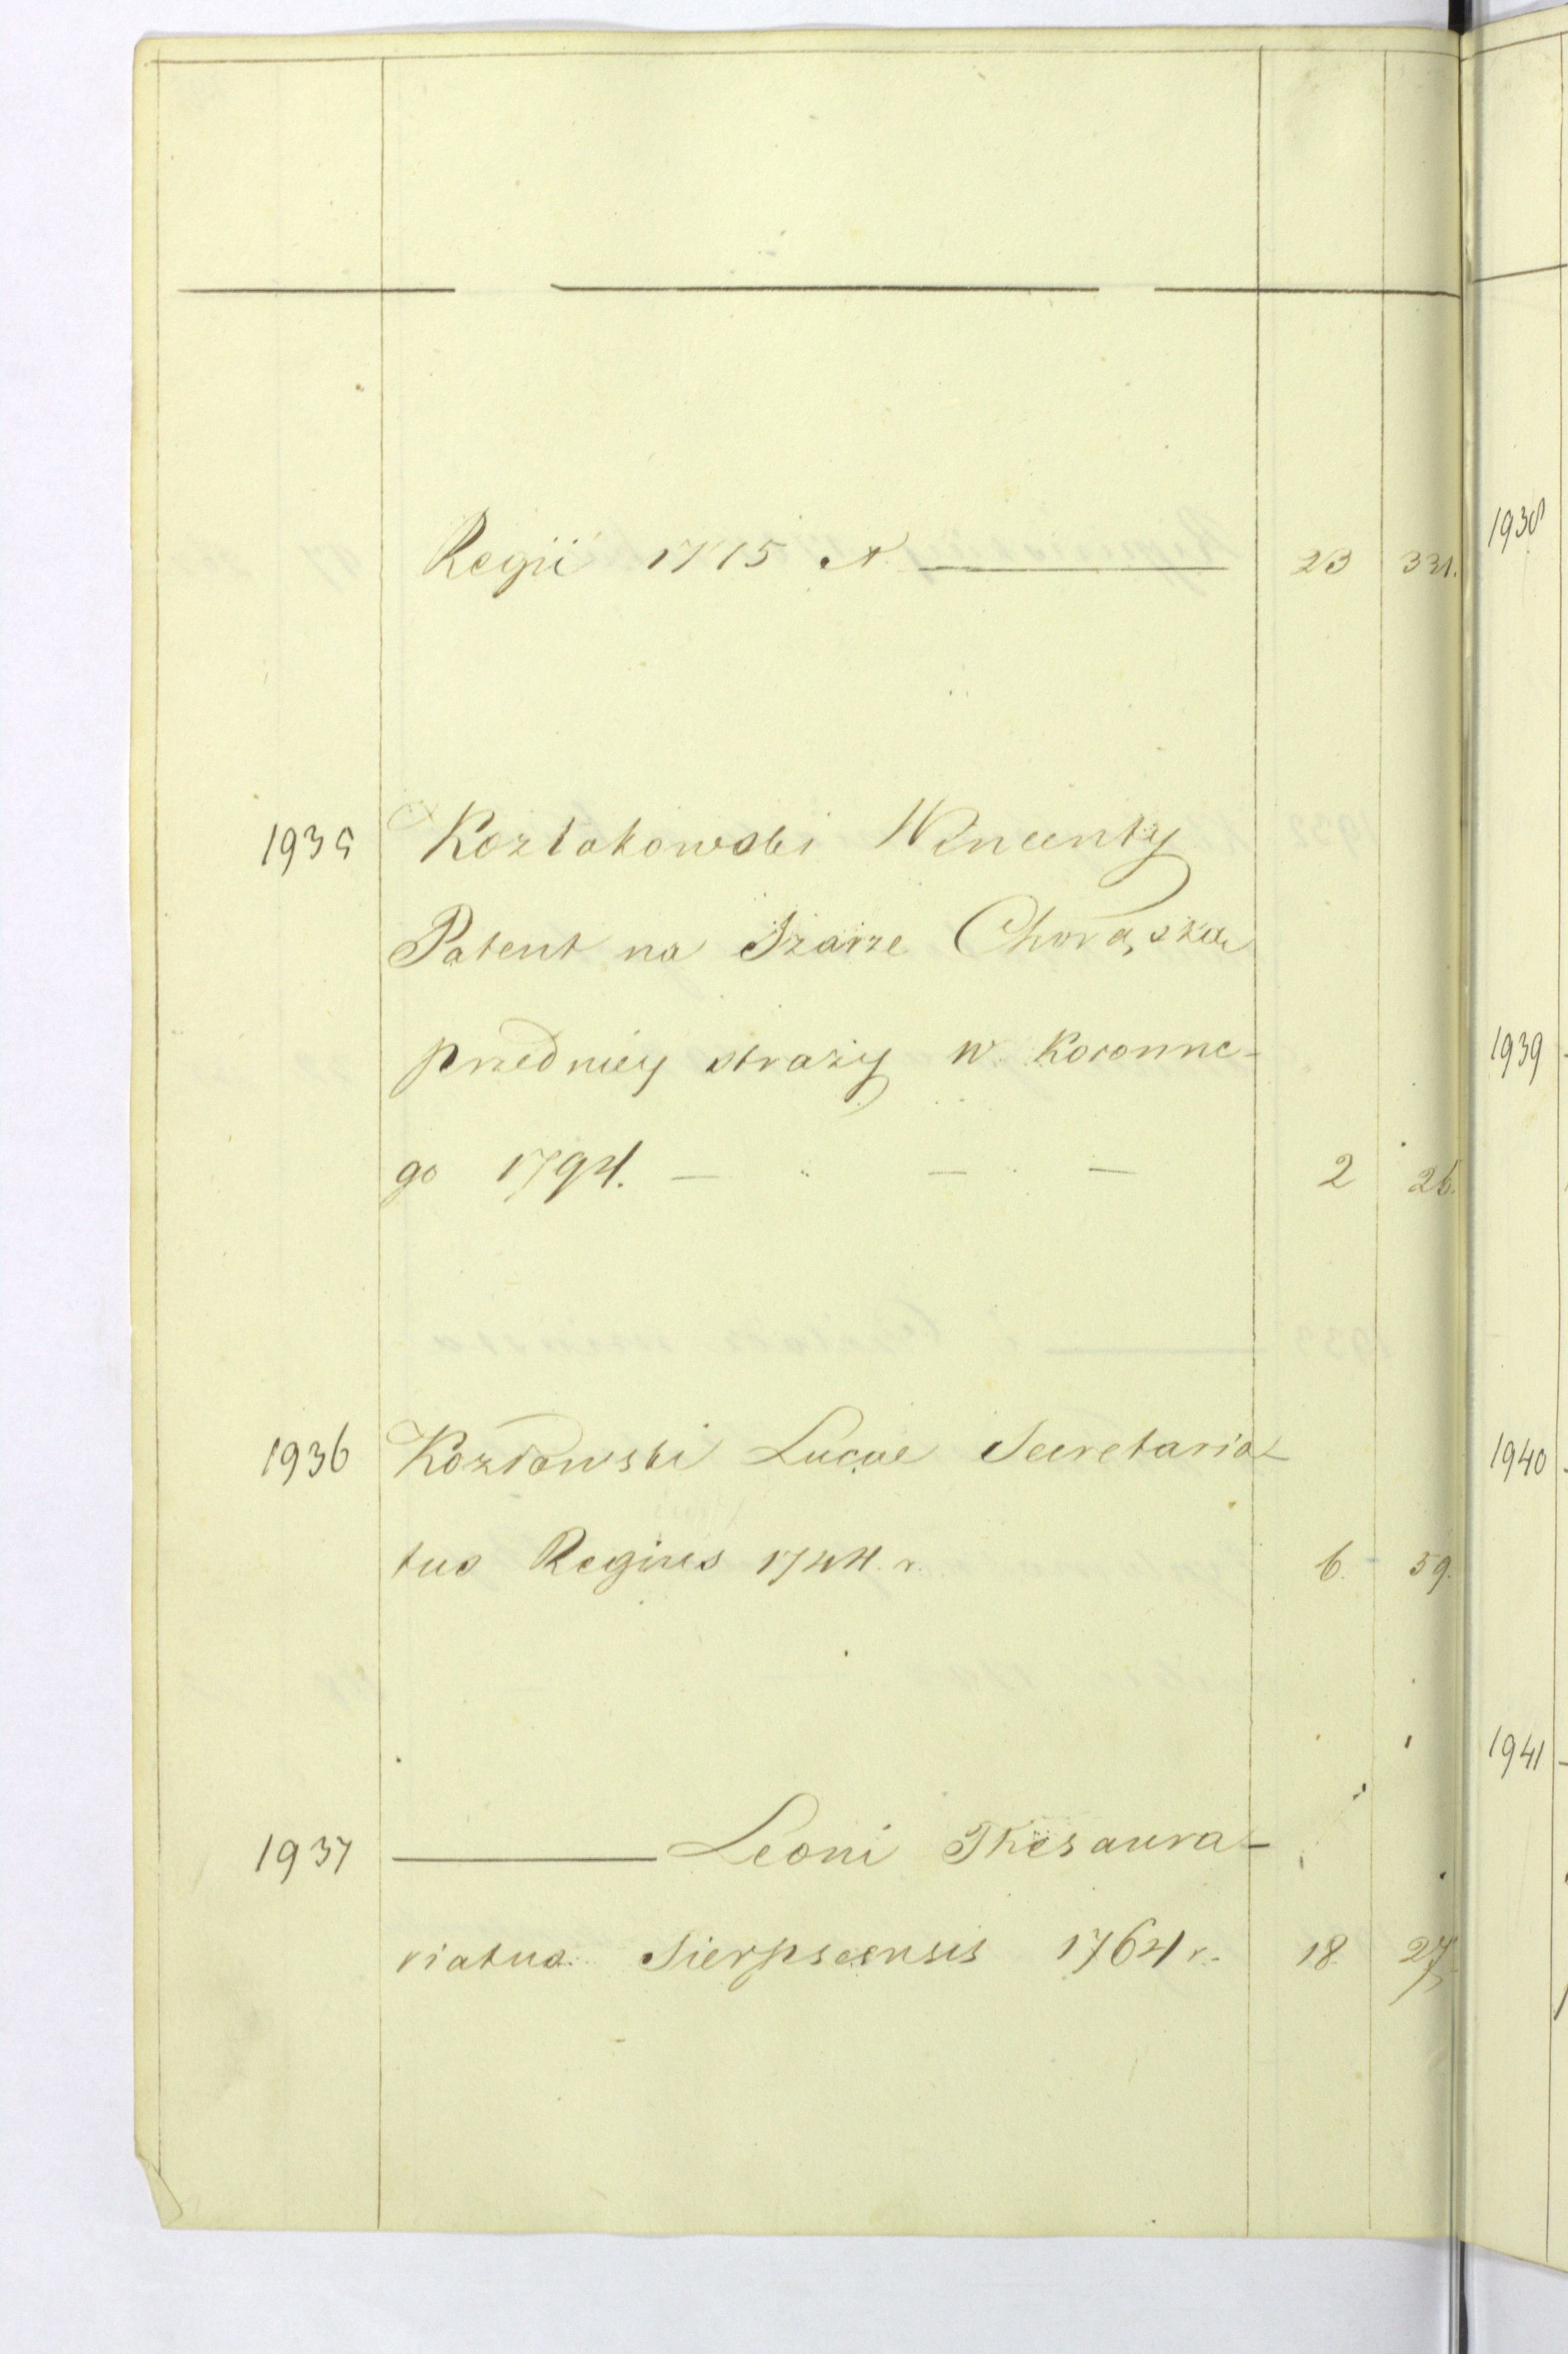 Regii 1775 r. 23 331.
1935 Kozłakowski Wincenty
Patent na Szarże Chorąża
przedniey straży w. Koronne-
go 1794. — — — 2 26.
1936 Kozłowski Lucae Secretaria-
tus Regius 1744. r. 6. 59.
1937 ——— Leoni Thesaura-
riatus Sierpscensis 1764 r. 18. 27
1938
1939
1940
1941